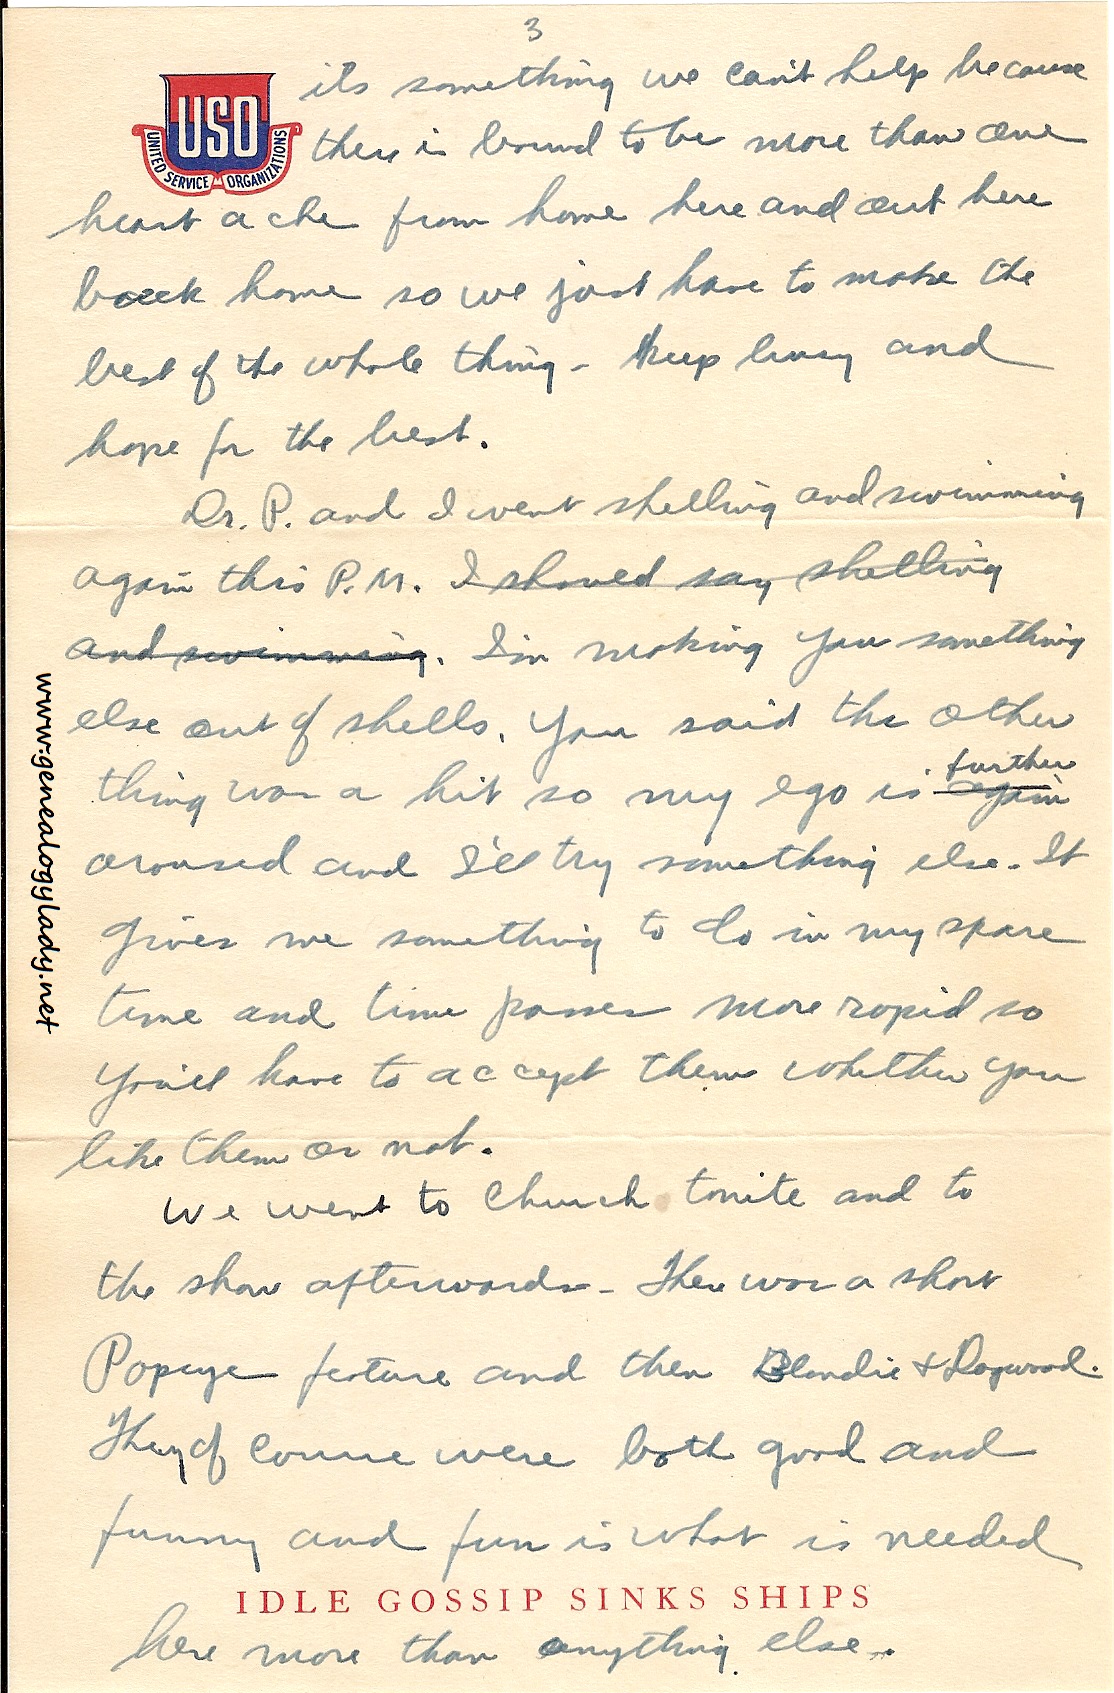 3
USO
UNITED SERVICE ORGANIZATIONS
its something we can't help because
there is bound to be more than one
heart ache from home here and out here
back home so we just have to make the
best of the whole thing - Keep busy and
hope for the best.
Dr. P. and I went shelling and swimming
again this P.M. I should say shelling
and swimming. I'm making you something
else out of shells. You said the other
further
thing was a hit so my ego is again
aroused and I'll try something else. It
gives me something to do in my spare
time and time passes more rapid so
you'll have to accept them whether you
like them or not.
We went to Church tonite and to
the show afterwards - There was a short
Popeye feature and then Blondie & Dagwood.
They of course were both good and
funny and fun is what is needed
IDLE GOSSIP SINKS SHIPS
here more than anything else.
www.genealogylady.net